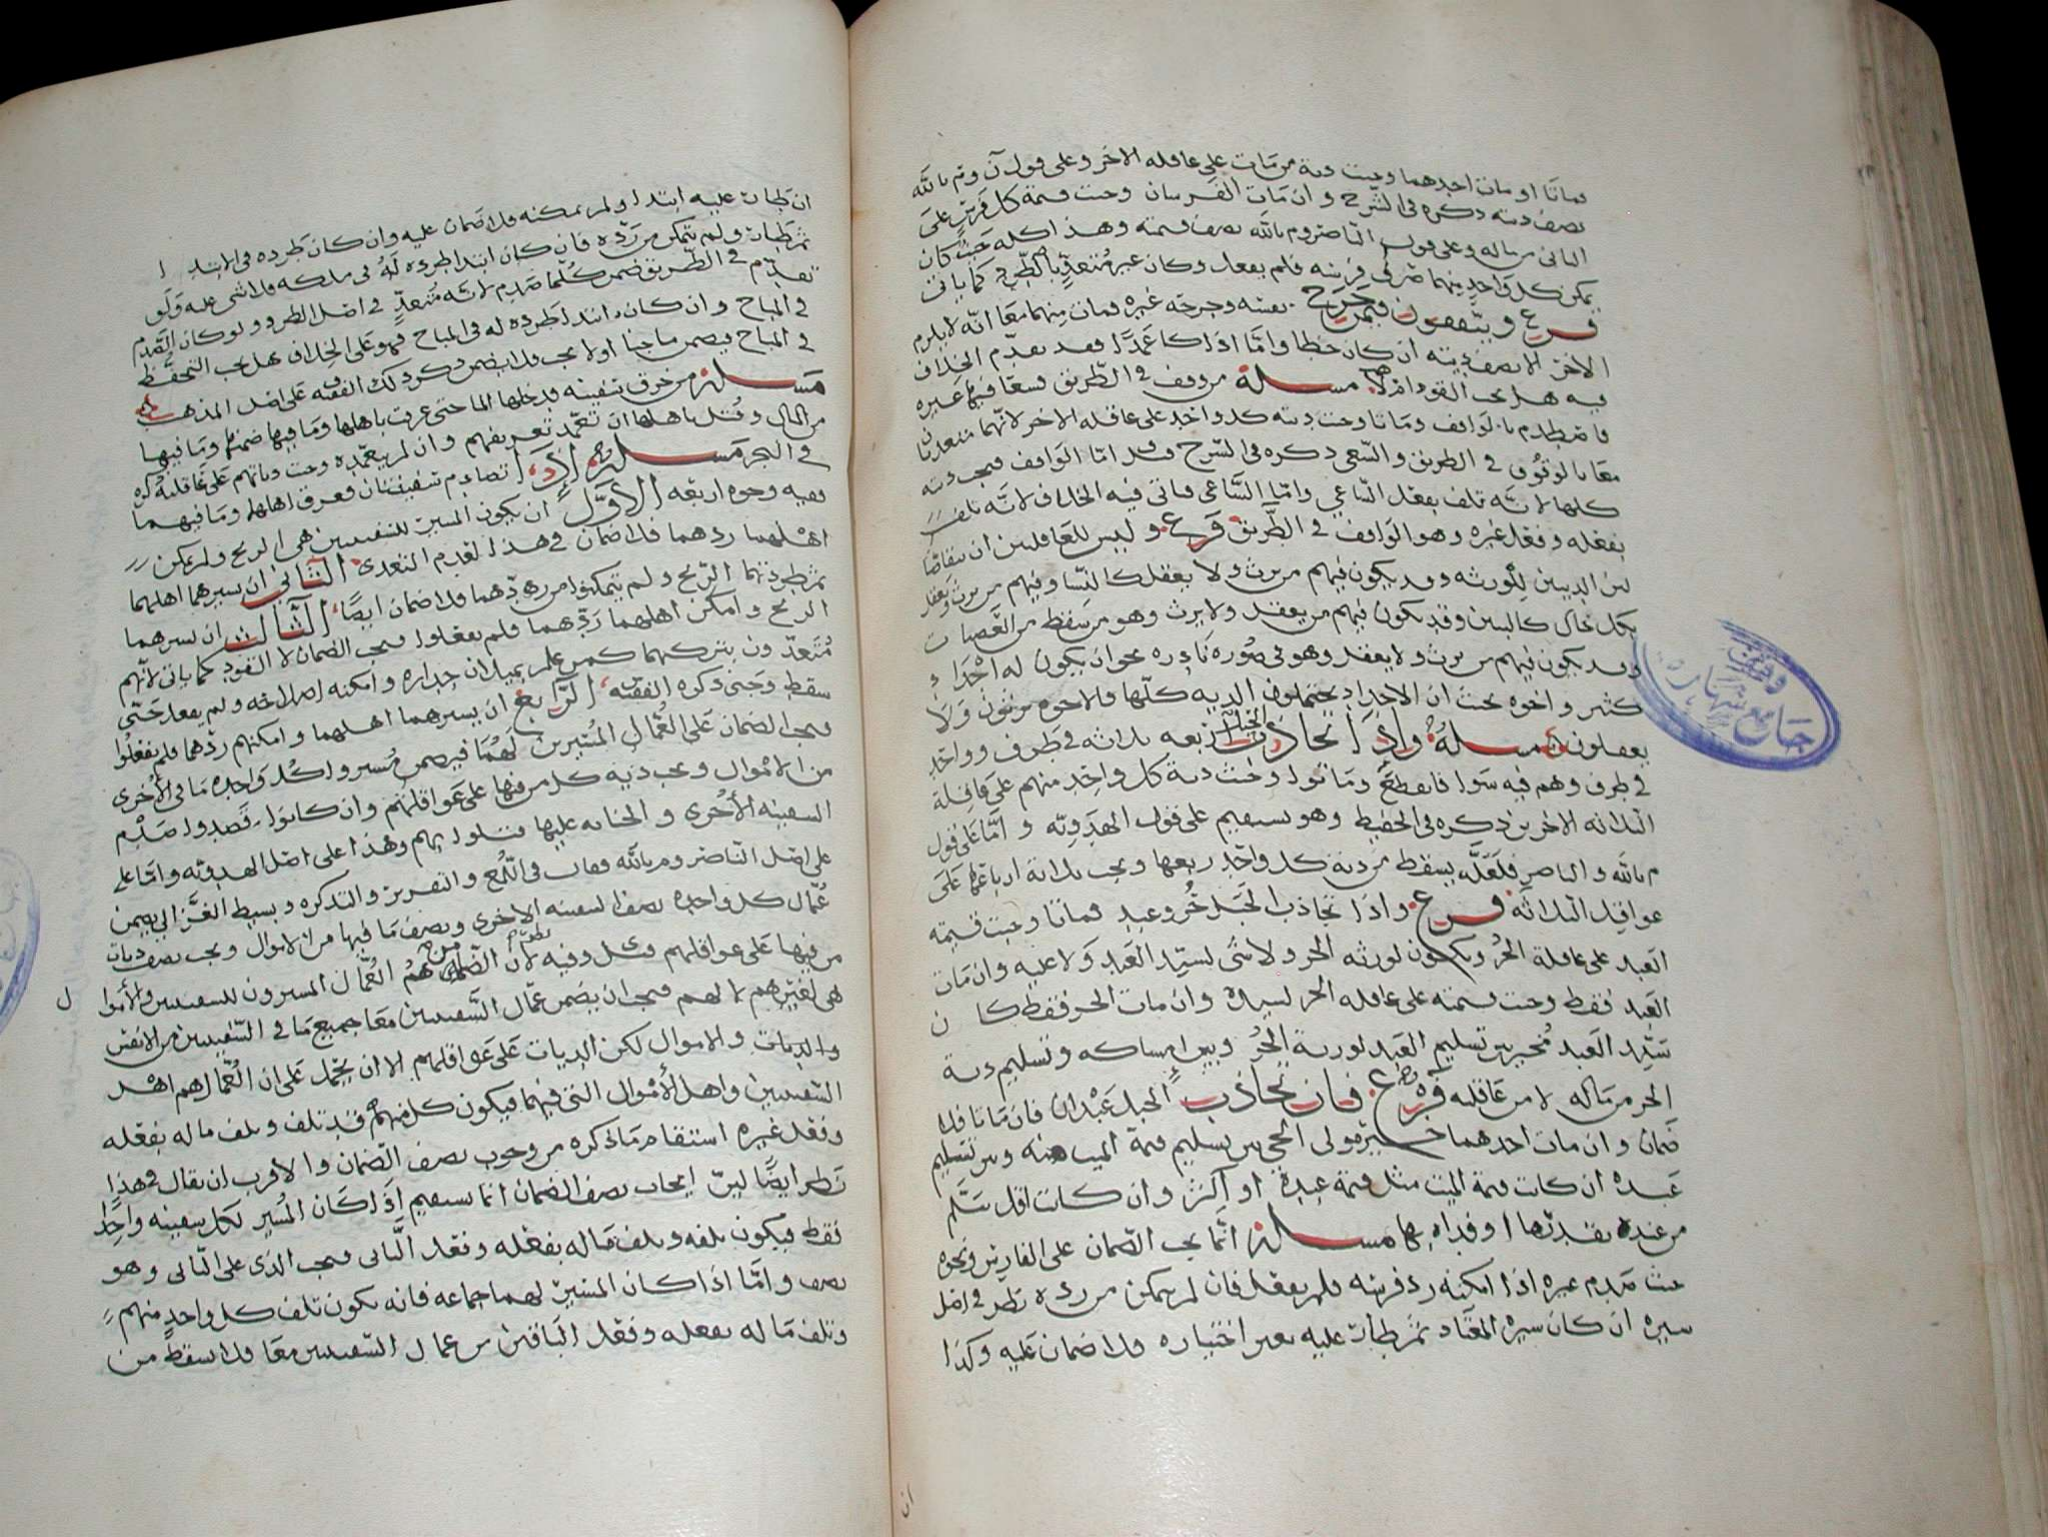 فماتا او مات احدهما وجبت دية من مات على عاقله الاخر وعلى قول ن وم بالله
نصف ديته ذكره في الشرح وان مات الفرسان وجبت قيمة كل فرس على
الثاني من ماله وعلى قول الناصر وم بالله نصف قيمته وهذا كله حيث كان
يمكن كل واحد منهما صرف فرسه فلم يفعل وكان غير متعد بالطرد كما ياتي
فرع ويتفقون فيمن جرح نفسه وجرحه غيره فمات منهما معا انه لا يلزم
الاخر الا نصف ديته ان كان خطا واما اذا كا عمدا فقد تقدم الخلاف
فيه هل يجب القود ام لا مسلة من وقف في الطريق فسعا فيها غيره
فاصطدم بالواقف وماتا وجبت دية كل واحد على عاقله الاخر لانهما متعديان
معا بالوقوف في الطريق والسعي ذكره في الشرح قلد اما الواقف فيجب ديته
كلها لانه تلف بفعل الساعي واما الساعي فياتي فيه الخلاف لانه تلف
بفعله وفعل غيره وهو الواقف في الطريق فرع وليس للعاقلتين ان يتقاصا
لان الديتين للورثه وقد يكون فيهم من يرث ولا يعقل كالنسا وفيهم من يرث ويعقل
بكل حال كالبنين وقد يكون فيهم من يعقل ولا يرث وهو من يسقط من العصبات
وقد يكون فيهم من يرث ولا يعقل وهو في صوره نادره نحو ان يكون له اجداد
كثير واخوه بحيث ان الاجداد يحتملون الديه كلها فالاخوه يرثون ولا
يعقلون مسلة واذا تجاذب الحبل اربعه ثلاثه في طرف وواحد
في طرف وهم فيه سوا فانقطع وماتوا وجبت دية كل واحد منهم على عاقلة
الثلاثه الاخرين ذكره في الحفيظ وهو يستقيم على قول الهدويه واما على قول
م بالله والناصر فلعله يسقط من دية كل واحد ربعها ويجب ثلاثة ارباعها على
عواقل الثلاثه فرع واذا تجاذب الحبل حر وعبد فماتا وجبت قيمة
العبد على عاقلة الحر ويكون لورثه الحر ولا شي لسيد العبد ولا عليه وان مات
العبد فقط وجبت قيمته على عاقله الحر لسيده وان مات الحر فقط كان
سيد العبد مخير بين تسليم العبد لورثة الحر وبين امساكه وتسليم دية
الحر من ماله لا من عاقله فرع فان تجاذب الحبل عبدان فان ماتا فلا
ضمان وان مات احدهما خير مولى الحي بين تسليم قيمة الميت منه وبين تسليم
عبده ان كانت قيمة الميت مثل قيمة عبده او اكثر وان كانت اقل سلم
من عنده بقدرها او فداه بها مسلة انما يجب الضمان على الفارس ونحوه
حيث صدم غيره اذا امكنه رد فرسه فلم يفعل فان لم يمكن من رده نظر في اصل
سيره ان كان سيره المعتاد ثم طبات عليه بغير اختياره فلا ضمان عليه وكذا
ان
ان طبات عليه ابتدا ولم يمكنه فلا ضمان عليه وان كان طرده في الابتدا
ثم طبات ولم يتمكن من رده فان كان ابتدا طرده له في ملكه فلا شي عليه ولو
تقدم في الطريق ضمن كلما صدم لانه متعد في اصل الطرد ولو كان الصدم
في المباح وان كان ابتدا طرده له في المباح فهو على الخلاف هل يجب التحفظ
في المباح فيضمن ما جنا او لا يجب فلا يضمن ذكر ذلك الفقيه على اصل المذهب
مسلة من خرق سفينه فدخلها الما حتى غرقت باهلها وما فيها ضمنها وما فيها
من المال وقتل باهلها ان تعمد تغريقهم وان لم يتعمده وجبت دياتهم على عاقلته ذكره
في البحر مسلة اذا تصادم سفينتان فغرق اهلهما وما فيهما
ففيه وجوه اربعه الاول ان يكون المسير للسفينتين هي الريح ولم يمكن
اهلهما ردهما فلا ضمان في هذا لعدم التعدي الثاني ان سيرهما اهلهما
ثم طردتهما الريح ولم يتمكنوا من ردهما فلا ضمان ايضا الثالث ان يسرهما
الريح وامكن اهلهما ردهما فلم يفعلوا فيجب الضمان لا القود كما ياتي لانهم
متعدون بتركهما كمن علم بميلان جداره وامكنه اصلاحه ولم يفعل حتى
سقط وجنى ذكره الفقيه الرابع ان يسرهما اهلهما وامكنهم ردهما فلم يفعلوا
فيجب الضمان على العمال المسيرين لهما فيضمن مسيروا كل واحده ما في الاخرى
من الاموال ويجب دية كل من فيها على عواقلهم وان كانوا قصدوا صدم
السفينه الاخرى والجنايه عليها قتلوا بهم وهذا على اصل الهدويه واما على
على اصل الناصر وم بالله فقال في اللمع والتقرير والتذكره وبسيط الغزالي يضمن
عمال كل واحده نصف السفينه الاخرى ونصف ما فيها من الاموال ويجب نصف ديات
من فيها على عواقلهم قيل وفيه نظر لان الضمان هم العمال المسيرون للسفينتين والاموال
هي لغيرهم لا لهم فيجب ان يضمن عمال السفينتين معا جميع ما في السفينتين من الانفس
والديات والاموال لكن الديات على عواقلهم الا ان يحمل على ان العمال هم اهل
السفينتين واهل الاموال التي فيهما فيكون كل منهم قد تلف وتلف ماله بفعله
وفعل غيره استقام ما ذكره من وجوب نصف الضمان والاقرب ان يقال في هذا
نظر ايضا لان ايجاب نصف الضمان انما يستقيم اذا كان المسير لكل سفينه واحدا
فقط فيكون تلفه وتلف ماله بفعله وفعل الثاني فيجب الذي على الثاني وهو
نصف واما اذا كان المسير لهما جماعه فانه يكون تلف كل واحد منهم
وتلف ماله بفعله وفعل الباقين من عمال السفينتين معا فلا يسقط من
وقف
جامع شهاره